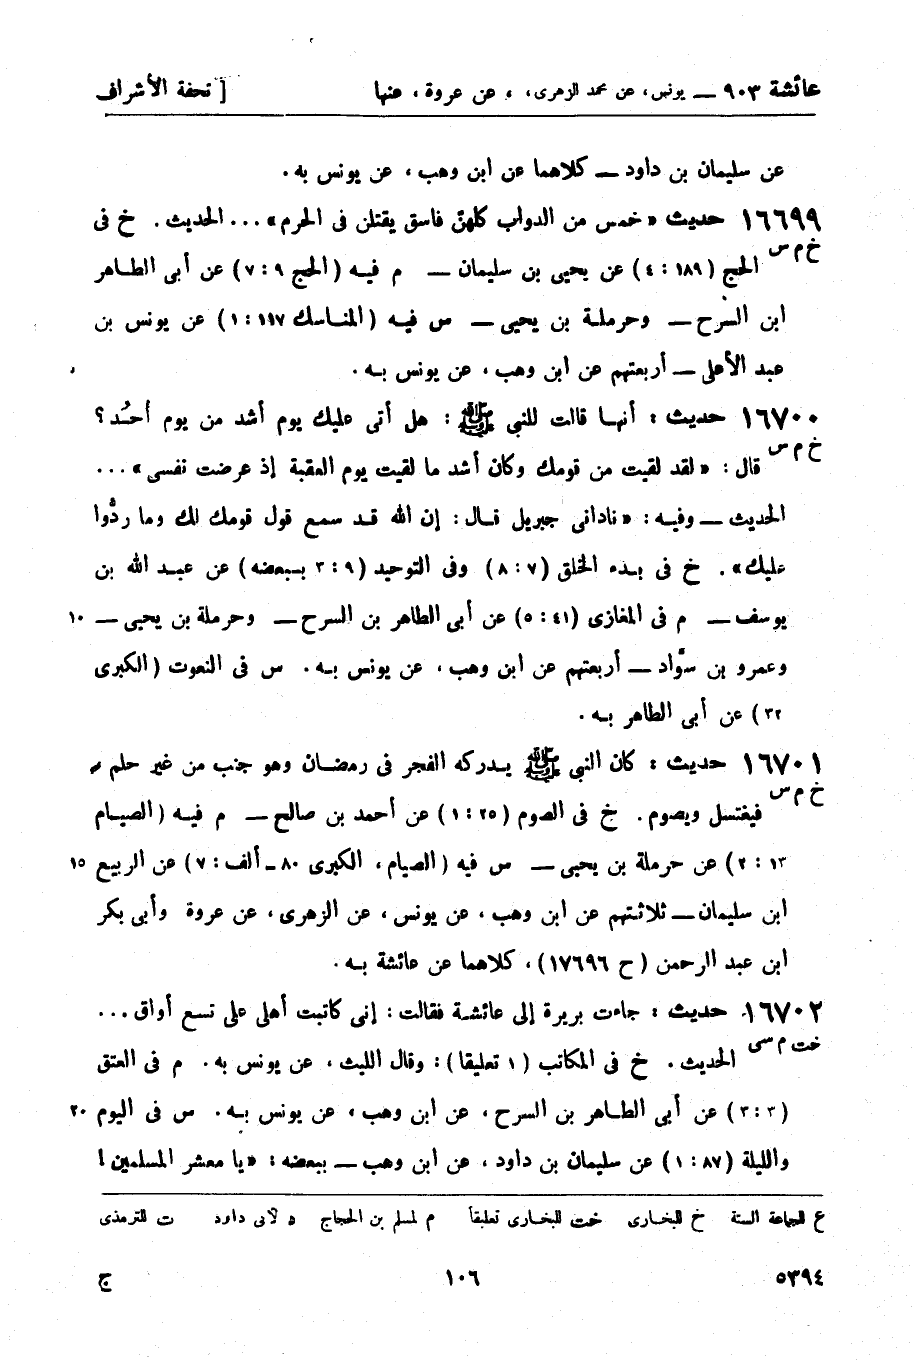 عائشة ٩٠٣ — يونس، عن محمد الزهرى، ، عن عروة، عنها [ تحفة الأشراف
عن سليمان بن داود — كلاهما عن ابن وهب، عن يونس به.
١٦٦٩٩ حديث «خمس من الدواب كلهنّ فاسق يقتلن فى الحرم»... الحديث. خ فى
خ م س الحج (١٨٩ : ٤) عن يحيى بن سليمان — م فيه (الحج ٩ : ٧) عن أبى الطاهر
ابن السرح — وحرملة بن يحيى — س فيه (المناسك ١١٧ : ١) عن يونس بن
عبد الأعلى — أربعتهم عن ابن وهب، عن يونس به.
١٦٧٠٠ حديث : أنها قالت للنبى ﷺ : هل أتى عليك يوم أشد من يوم أحُد؟
خ م س قال : «لقد لقيت من قومك وكان أشد ما لقيت يوم العقبة إذ عرضت نفسى»...
الحديث — وفيه : «نادانى جبريل قال : إن الله قد سمع قول قومك لك وما ردُّوا
عليك». خ فى بدء الخلق (٧ : ٨) وفى التوحيد (٩ : ٣ ببعضه) عن عبد الله بن
يوسف — م فى المغازى (٤١ : ٥) عن أبى الطاهر بن السرح — وحرملة بن يحيى — ١٠
وعمرو بن سوَّاد — أربعتهم عن ابن وهب، عن يونس به. س فى النعوت (الكبرى
٣٢) عن أبى الطاهر به.
١٦٧٠١ حديث : كان النبى ﷺ يدركه الفجر فى رمضان وهو جنب من غير حلم
خ م س فيغتسل ويصوم. خ فى الصوم (٢٥ : ١) عن أحمد بن صالح — م فيه (الصيام
١٣ : ٢) عن حرملة بن يحيى — س فيه (الصيام، الكبرى ٨٠ - ألف : ٧) عن الربيع ١٥
ابن سليمان — ثلاثتهم عن ابن وهب، عن يونس، عن الزهرى، عن عروة وأبى بكر
ابن عبد الرحمن (ح ١٧٦٩٦)، كلاهما عن عائشة به.
١٦٧٠٢ حديث : جاءت بريرة إلى عائشة فقالت : إنى كاتبت أهلى على تسع أواق...
خت م سى الحديث. خ فى المكاتب (١ تعليقا) : وقال الليث، عن يونس به. م فى العتق
(٣ : ٣) عن أبى الطاهر بن السرح، عن ابن وهب، عن يونس به. س فى اليوم ٢٠
والليلة (٨٧ : ١) عن سليمان بن داود، عن ابن وهب — ببعضه : «يا معشر المسلمين !
ع للجماعة الستة خ للبخارى خت للبخارى تعليقاً م لمسلم بن الحجاج د لأبى داود ت للترمذى
٥٣٩٤ ١٠٦ ج